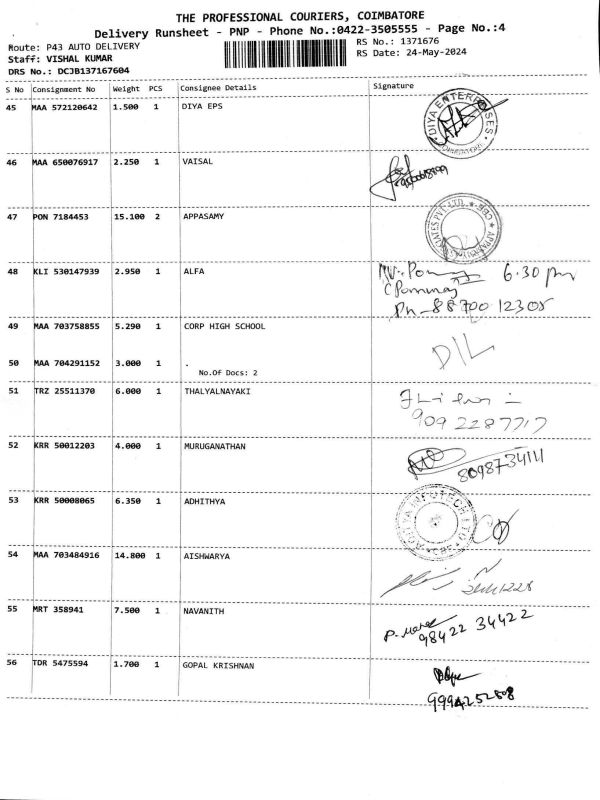 THE PROFESSIONAL COURIERS, COIMBATORE
Delivery Runsheet - PNP - Phone No.:0422-3505555 - Page No.:4
Route: P43 AUTO DELIVERY
Staff: VISHAL KUMAR
DRS No.: DCJB137167604
RS No.: 1371676
RS Date: 24-May-2024
S No Consignment No Weight PCS Consignee Details Signature
45 MAA 572120642 1.500 1 DIYA EPS
DIYA ENTERPRISES
46 MAA 650076917 2.250 1 VAISAL
47 PON 7184453 15.100 2 APPASAMY
48 KLI 530147939 2.950 1 ALFA
6.30 pm
Ph - 88700 12305
49 MAA 703758855 5.290 1 CORP HIGH SCHOOL
50 MAA 704291152 3.000 1 .
No.Of Docs: 2
51 TRZ 25511370 6.000 1 THALYALNAYAKI
909 2287717
52 KRR 50012203 4.000 1 MURUGANATHAN
8098734111
53 KRR 50008065 6.350 1 ADHITHYA
54 MAA 703484916 14.800 1 AISHWARYA
55 MRT 358941 7.500 1 NAVANITH
98422 34422
56 TDR 5475594 1.700 1 GOPAL KRISHNAN
9994252808